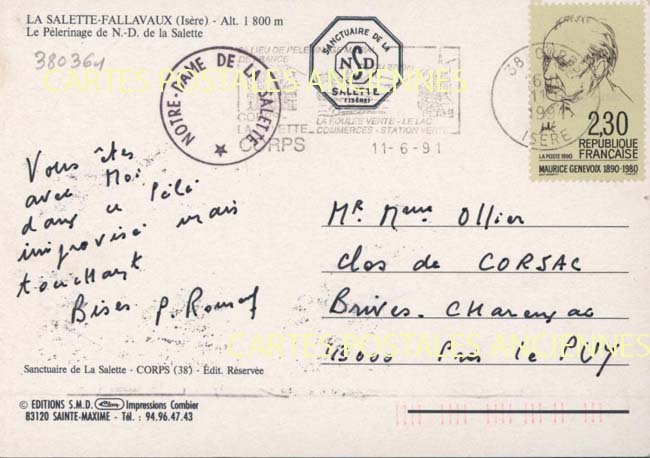 LA SALETTE-FALLAVAUX (Isère) - Alt. 1 800 m
Le Pèlerinage de N.-D. de la Salette
380364
NOTRE-DAME DE LA SALETTE
SANCTUAIRE DE LA
NSD
SALETTE
(ISÈRE)
LIEU DE PELERINAGE
DE FRANCE
LA SALETTE
CORPS
LA FOULEE VERTE - LE LAC
COMMERCES - STATION VERTE
11-6-91
38 CORPS
ISÈRE
2,30
REPUBLIQUE
FRANÇAISE
LA POSTE 1990
MAURICE GENEVOIX 1890-1980
CARTES POSTALES ANCIENNES
Vous êtes
avec Moi
dans ce Pélé
improvisé mais
touchant
Bises P.
Mr Mme Ollier
Clos de CORSAC
Brives. Charensac
43000 Près le PUY
CARTES POSTALES ANCIENNES
Sanctuaire de La Salette - CORPS (38) - Édit. Réservée
© EDITIONS S.M.D. Impressions Combier
83120 SAINTE-MAXIME - Tél. : 94.96.47.43